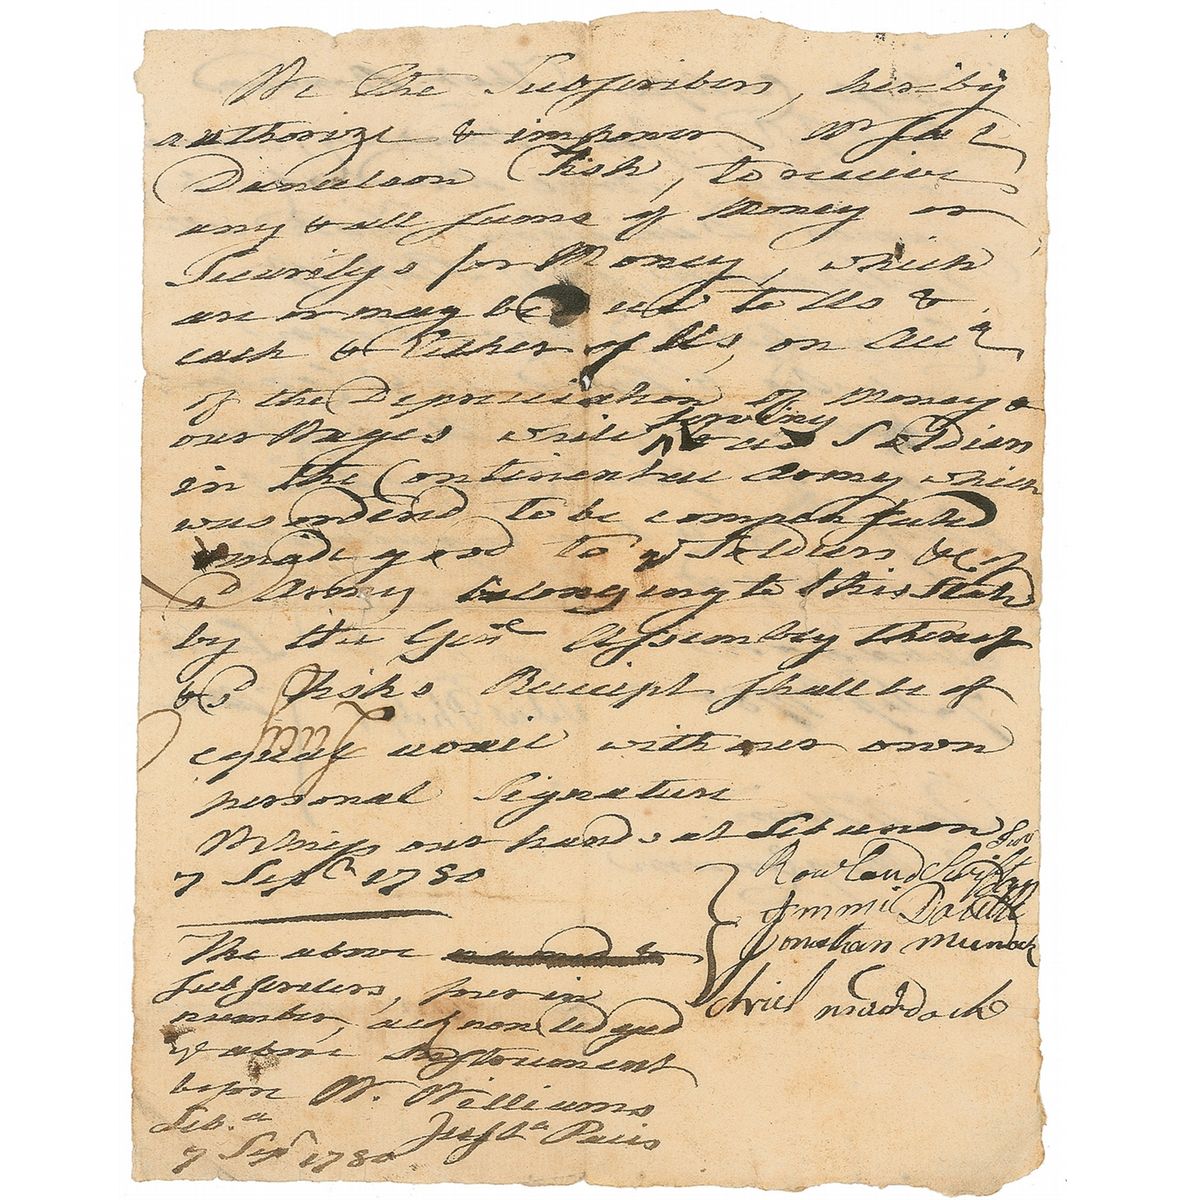 We the Subscribers, hereby
authorize & impower Mr
Danielson Fish, to receive
any & all sums of Money or
Securitys for Money, which
are or may be due to Us &
each & Either of Us, on Acct
of the Depreciation of Money &
our Wages while serving as Soldiers
in the Continental Army which
was orderd to be compensated
& made good to ye Soldiers &c of
sd Army belonging to this State
by the Genl Assembly thereof
& sd Fish's Receipt shall be of
Lucy
equal avail with our own
personal Signature
Witness our hands at Lebanon
7 Sept 1780
Rowland Swift
Jonathan Murdock
Ariel murddock
The above named &
subscribers, four in
number, acknowledged
ye above Instrument
before W. Williams
Leb.n Just.a Pacis
7 Sepr 1780